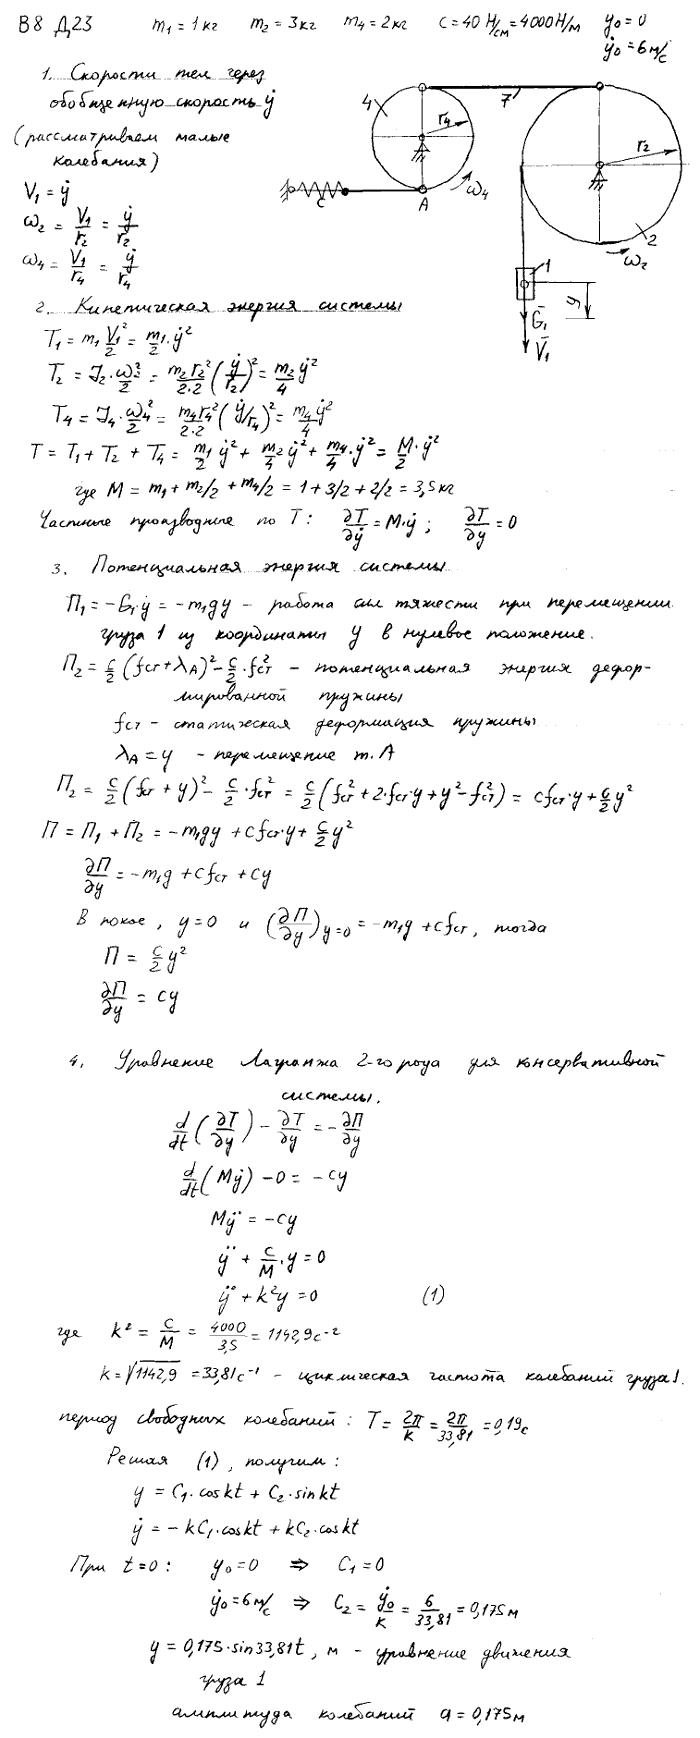 В8 Д23 m₁ = 1 кг m₂ = 3 кг m₄ = 2 кг C = 40 Н/см = 4000 Н/м y₀ = 0
ẏ₀ = 6 м/с
1. Скорости тел через
обобщенную скорость ẏ
(рассматриваем малые
колебания)
V₁ = ẏ
ω₂ = V₁/r₂ = ẏ/r₂
ω₄ = V₁/r₄ = ẏ/r₄
4 r₄ 7 r₂
C A ω₄ 2
ω₂
1 y
G̅₁
V̅₁
2. Кинетическая энергия системы
T₁ = m₁ V₁²/2 = m₁/2 · ẏ²
T₂ = J₂ · ω₂²/2 = m₂r₂²/2·2 (ẏ/r₂)² = m₂/4 ẏ²
T₄ = J₄ · ω₄²/2 = m₄r₄²/2·2 (ẏ/r₄)² = m₄/4 ẏ²
T = T₁ + T₂ + T₄ = m₁/2 ẏ² + m₂/4 ẏ² + m₄/4 · ẏ² = M/2 · ẏ²
где M = m₁ + m₂/2 + m₄/2 = 1 + 3/2 + 2/2 = 3,5 кг
Частные производные по T: ∂T/∂ẏ = M·ẏ ; ∂T/∂y = 0
3. Потенциальная энергия системы
П₁ = −G₁·y = −m₁gy – работа сил тяжести при перемещении
груза 1 из координаты y в нулевое положение.
П₂ = c/2 (fст + λA)² − c/2 · fст² – потенциальная энергия дефор-
мированной пружины
fст – статическая деформация пружины
λA = y – перемещение т. A
П₂ = c/2 (fст + y)² − c/2 · fст² = c/2 (fст² + 2·fст·y + y² − fст²) = cfст·y + c/2 y²
П = П₁ + П₂ = −m₁gy + cfст·y + c/2 y²
∂П/∂y = −m₁g + cfст + cy
В покое, y=0 и (∂П/∂y)y=0 = −m₁g + cfст, тогда
П = c/2 y²
∂П/∂y = cy
4. Уравнение Лагранжа 2-го рода для консервативной
системы.
d/dt (∂T/∂ẏ) − ∂T/∂y = −∂П/∂y
d/dt (Mẏ) − 0 = −cy
Mÿ = −cy
ÿ + c/M · y = 0
ÿ + k²y = 0 (1)
где k² = c/M = 4000/3,5 = 1142,9 с⁻²
k = √1142,9 = 33,81 с⁻¹ – циклическая частота колебаний груза 1.
период свободных колебаний: T = 2π/k = 2π/33,81 = 0,19 с
Решая (1), получим:
y = C₁·cos kt + C₂·sin kt
ẏ = −kC₁·cos kt + kC₂·cos kt
При t=0: y₀ = 0 ⇒ C₁ = 0
ẏ₀ = 6 м/с ⇒ C₂ = ẏ₀/k = 6/33,81 = 0,175 м
y = 0,175·sin 33,81t, м – уравнение движения
груза 1
амплитуда колебаний a = 0,175 м